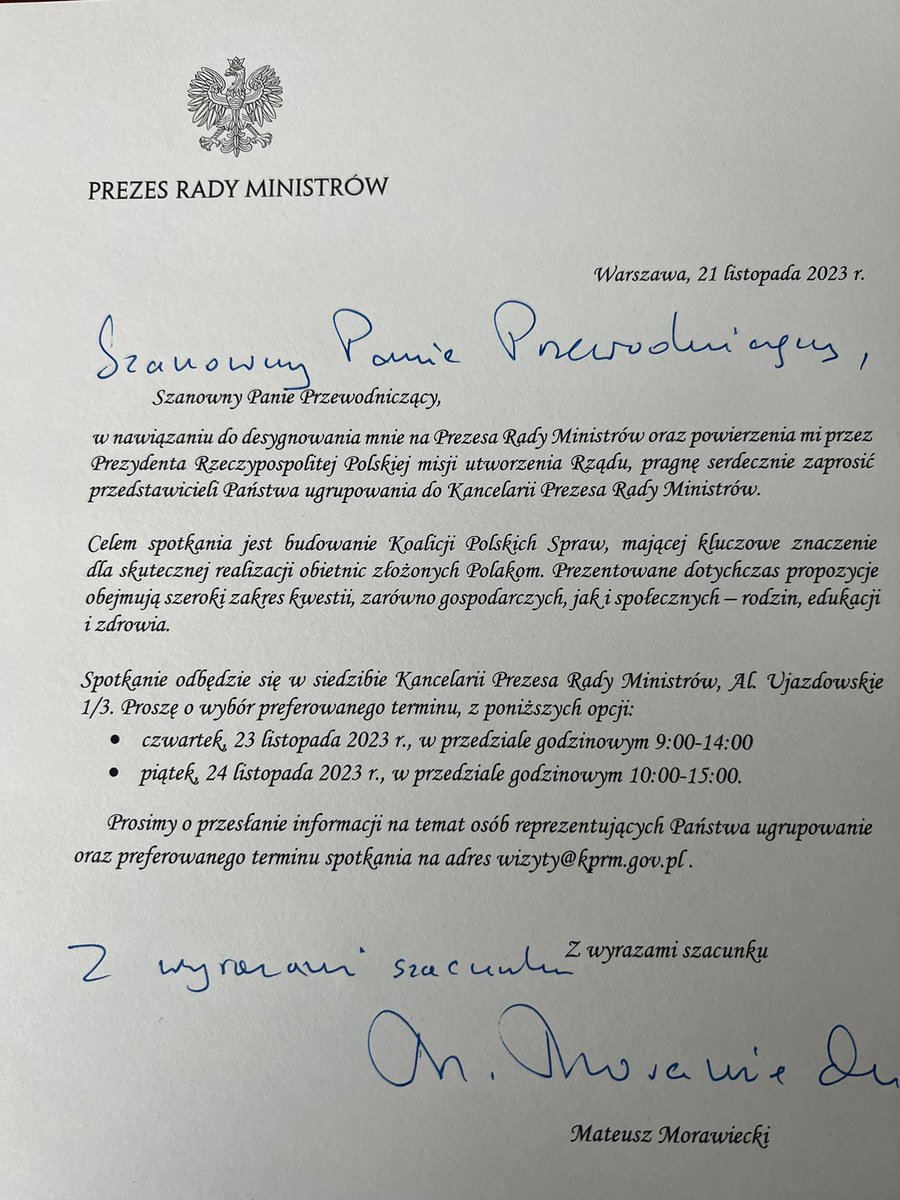 PREZES RADY MINISTRÓW
Warszawa, 21 listopada 2023 r.
Szanowny Panie Przewodniczący,
Szanowny Panie Przewodniczący,
w nawiązaniu do desygnowania mnie na Prezesa Rady Ministrów oraz powierzenia mi przez
Prezydenta Rzeczypospolitej Polskiej misji utworzenia Rządu, pragnę serdecznie zaprosić
przedstawicieli Państwa ugrupowania do Kancelarii Prezesa Rady Ministrów.
Celem spotkania jest budowanie Koalicji Polskich Spraw, mającej kluczowe znaczenie
dla skutecznej realizacji obietnic złożonych Polakom. Prezentowane dotychczas propozycje
obejmują szeroki zakres kwestii, zarówno gospodarczych, jak i społecznych – rodzin, edukacji
i zdrowia.
Spotkanie odbędzie się w siedzibie Kancelarii Prezesa Rady Ministrów, Al. Ujazdowskie
1/3. Proszę o wybór preferowanego terminu, z poniższych opcji:
• czwartek, 23 listopada 2023 r., w przedziale godzinowym 9:00-14:00
• piątek, 24 listopada 2023 r., w przedziale godzinowym 10:00-15:00.
Prosimy o przesłanie informacji na temat osób reprezentujących Państwa ugrupowanie
oraz preferowanego terminu spotkania na adres wizyty@kprm.gov.pl .
Z wyrazami szacunku
Z wyrazami szacunku
M. Morawie
Mateusz Morawiecki